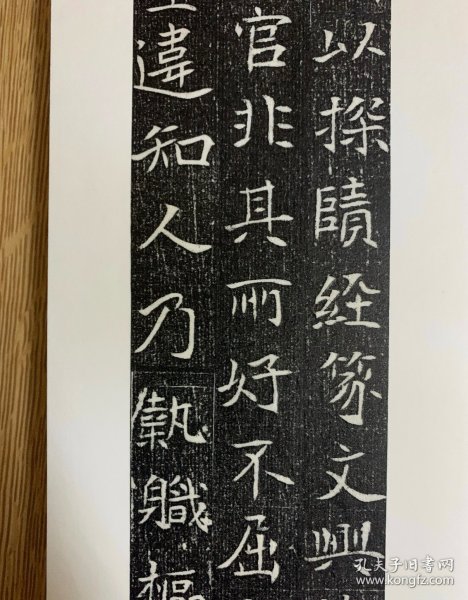 以探賾經篆文興
官非其所好不屈
違知人乃執職樞
孔夫子旧书网
www.kongfz.com